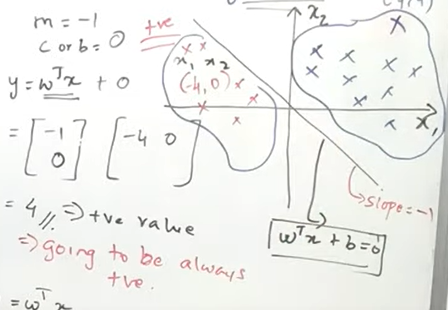 m = -1
c or b = 0
y = wᵀx + 0
= [-1 0] [-4 0]
= 4 ⇒ +ve value
⇒ going to be always
+ve.
= wᵀx
+ve
x₁ x₂
(-4,0)
x₂
x₁
slope = -1
wᵀx + b = 0